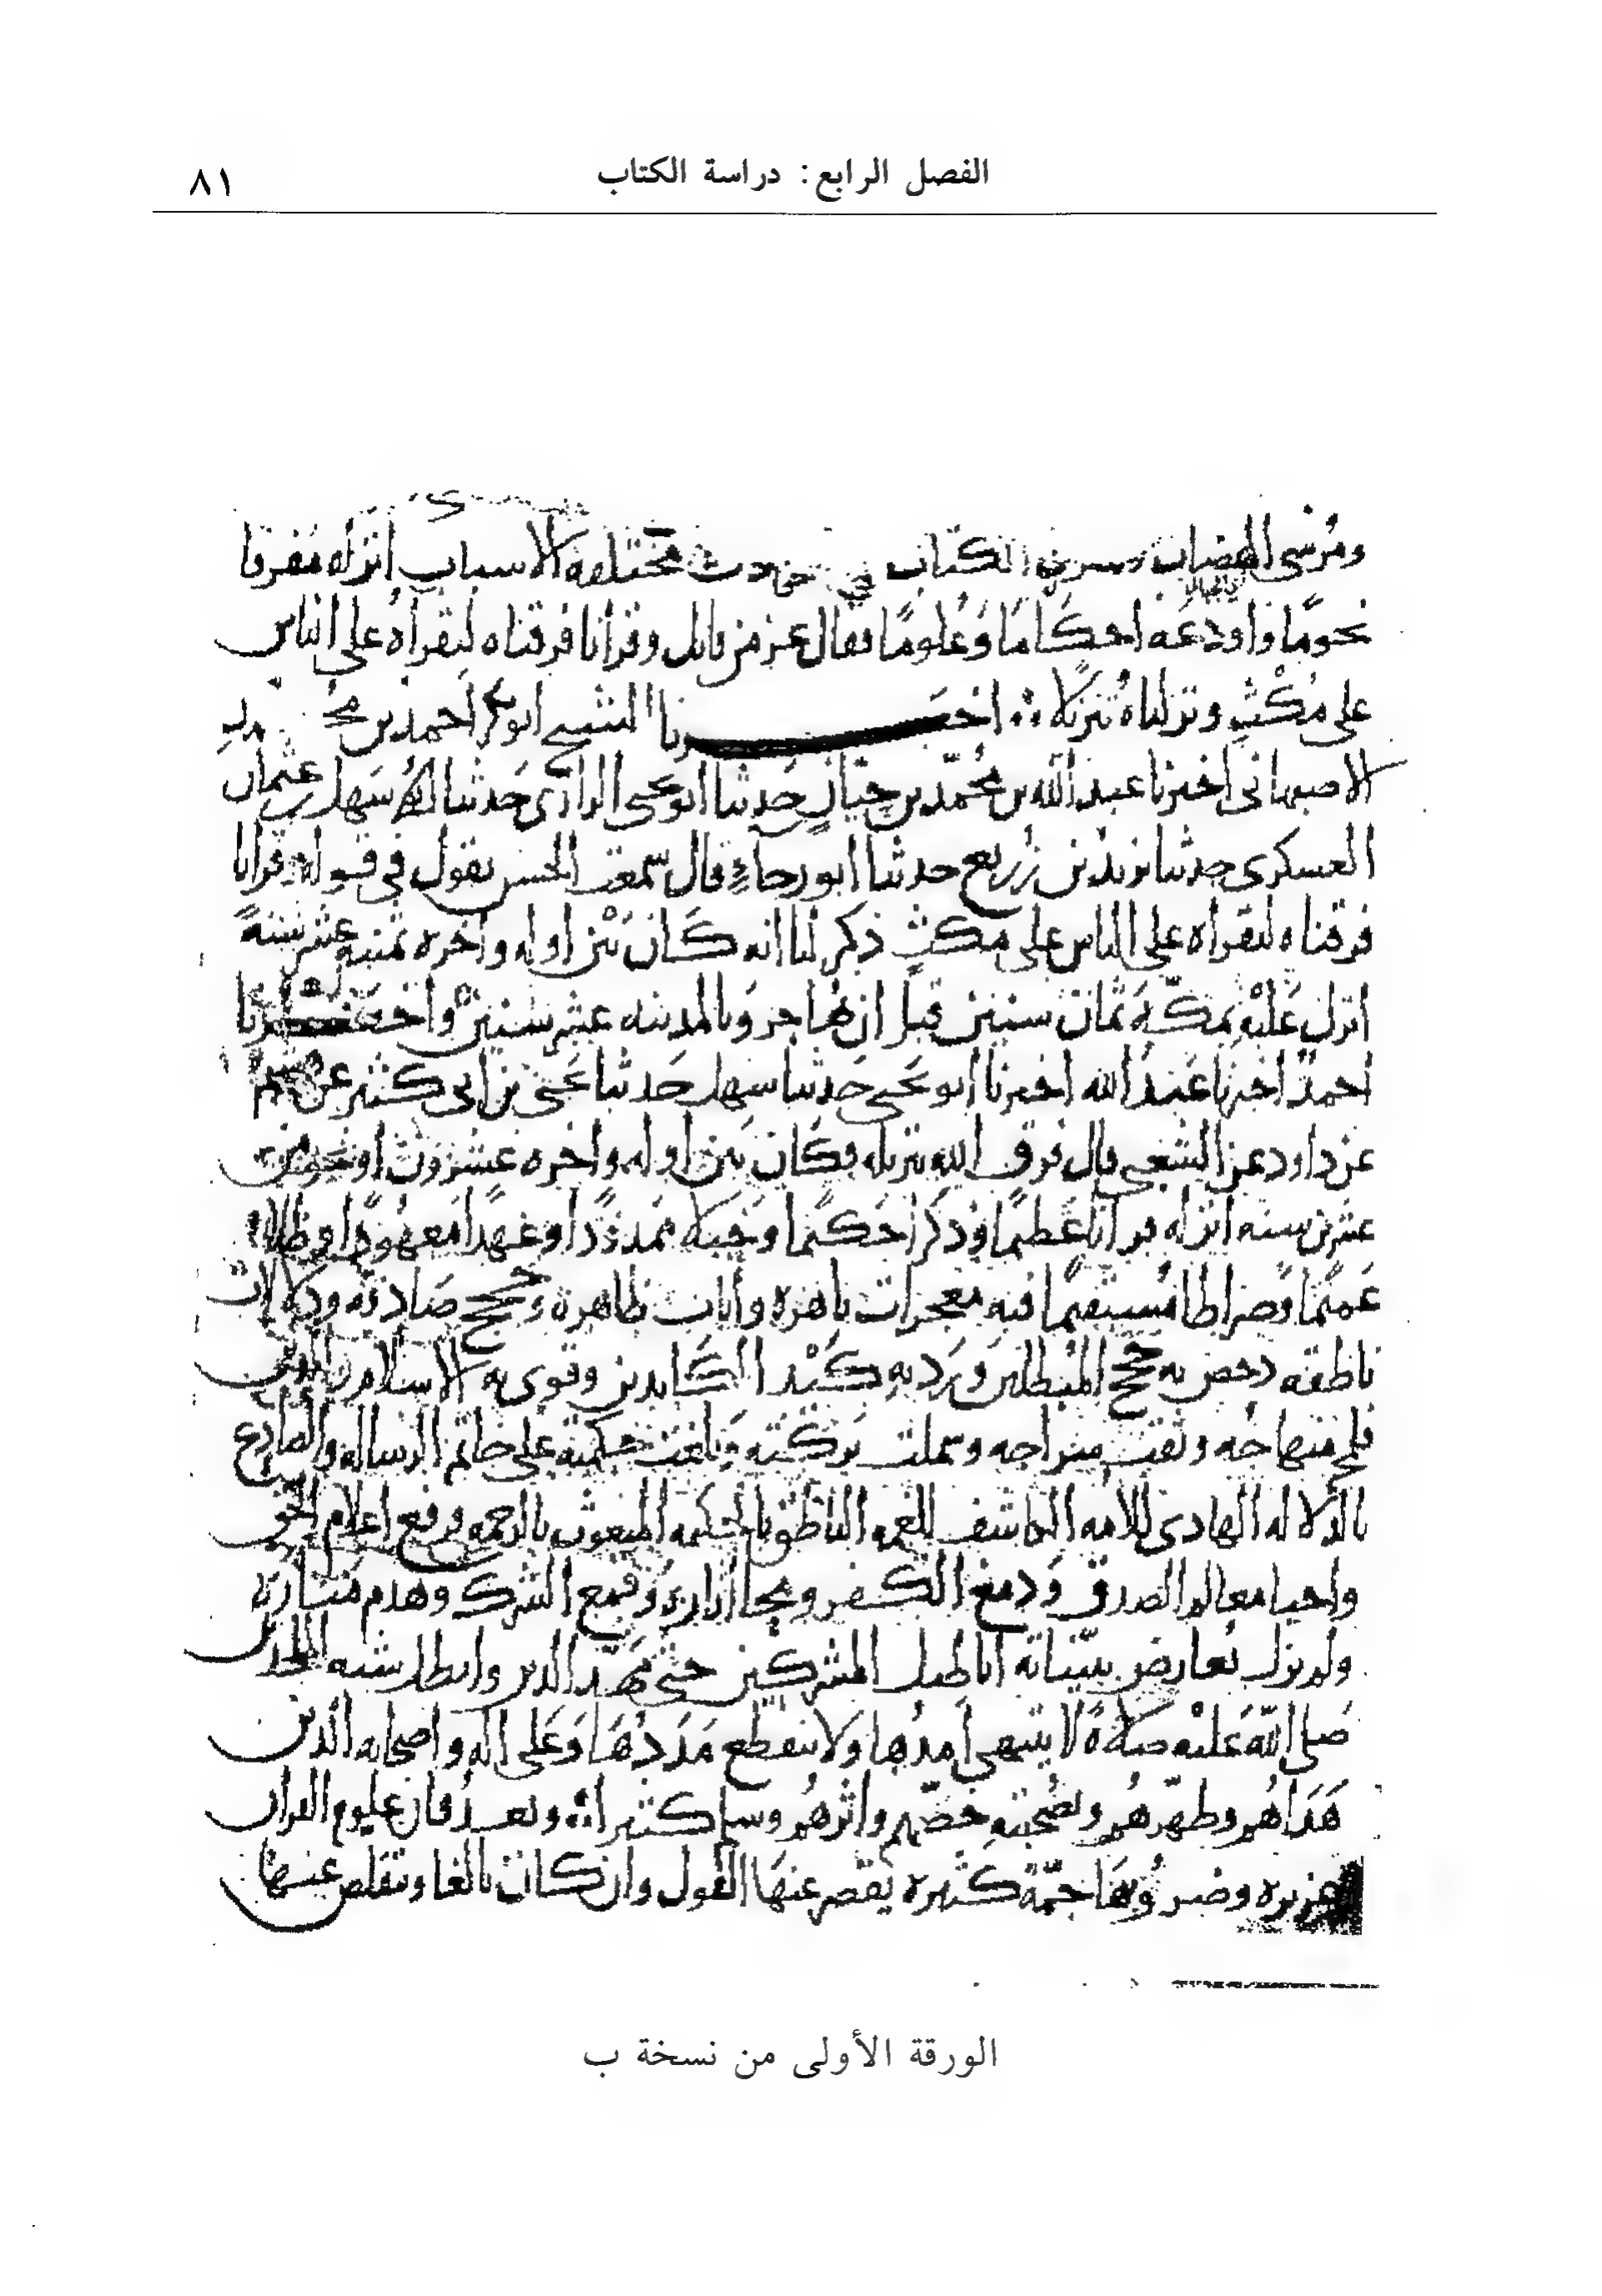 الفصل الرابع: دراسة الكتاب
٨١
ومرسى الهضاب الكتاب في حوادث مختلفة الاسباب انزله مفرقا
نجومًا واودعه احكامًا وعلومًا فقال عز من قايل وقرانا فرقناه لتقراه على الناس
على مُكْثٍ ونزلناه تنزيلا اخبرنا الشيخ ابو بكر احمد بن محمد
الاصبهاني اخبرنا عبد الله بن محمد بن حيان حدثنا ابو يحيى الرازي حدثنا سهل بن عثمان
العسكري حدثنا يزيد بن زريع حدثنا ابو رجاء قال سمعت الحسن يقول في قوله وقرانا
فرقناه لتقراه على الناس على مكث ذكر لنا انه كان بين اوله واخره ثمنية عشر سنةً
انزل عليه بمكة ثمان سنين قبل ان يهاجر وبالمدينه عشر سنين واخبرنا
احمد اخبرنا عبد الله اخبرنا ابو يحيى حدثنا سهل حدثنا يحيى بن ابي كثير عن هشيم
عن داود عن الشعبي قال فرق الله تنزيله فكان بين اوله واخره عشرون او نحو من
عشرين سنه انزله قرانا عظيمًا وذكرا حكيمًا وحبلا ممدودًا وعهدًا معهودًا وظلا
عميمًا وصراطا مستقيمًا فيه معجزات باهرة وايات ظاهرة وحجج صادقه ودلالات
ناطقه دحض به حجج المبطلين ورد به كيد الكايدين وقوى به الاسلام والدين
فلج منهاجه وثقب سراجه وشملت بركته وبلغت حكمته على خاتم الرساله والصادع
بالدلالة الهادي للامه الكاشف للغمه الناطق بالحكمه المبعوث بالرحمه فرفع اعلام الحق
واحيا معالم الصدق ودمغ الكفر ومحا اثاره وقمع الشرك وهدم مناره
ولم يزل يعارض ببيناته اباطيل المشركين حتى مهد الدين وابطل شبه الملحدين
صلى الله عليه صلاةً لا ينتهي امدُها ولا ينقطع مددُها وعلى اله واصحابه الذين
هداهُم وطهرهُم وبصحبته خصّهم واثرهُم وسلم كثيرا وبعدُ فان علوم القران
غزيره وضروبها جمّة كثيره يقصر عنها القول وان كان بالغا ويتقلص عنها
الورقة الأولى من نسخة ب